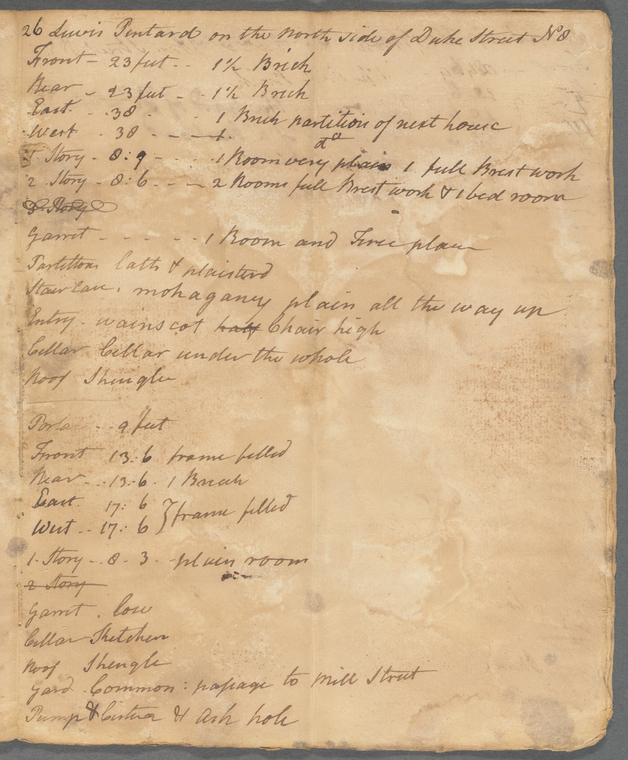 26 Lewis Pintard on the North side of Duke Street No 8
Front - 23 feet - - 1½ Brick
Rear - 23 feet - - 1½ Brick
East - 38 - 1 Brick partition of next house
West - 38 - - - 1 do
1 Story - 8:9 - - - 1 Room very plain 1 full Brest work
2 Story - 8:6 - - - 2 Rooms full Brest work & 1 bed room
3 Story
Garret - - - - - 1 Room and Fire place
Partitions lath & plaisterd
Stair Case, mohagancy plain all the way up
Entry - wainscot half Chair high
Cellar Cellar under the whole
Roof Shengle
- - 9 feet
Front 13:6 frame filled
Rear - 13:6 1 Brick
East 17:6 } frame filled
West - 17:6
1 Story - 8 - 3 - plain room
2 Story
Garret - low
Cellar Kitchen
Roof Shengle
Yard - Common: passage to Mill Street
Pump & Cistern & Ash hole